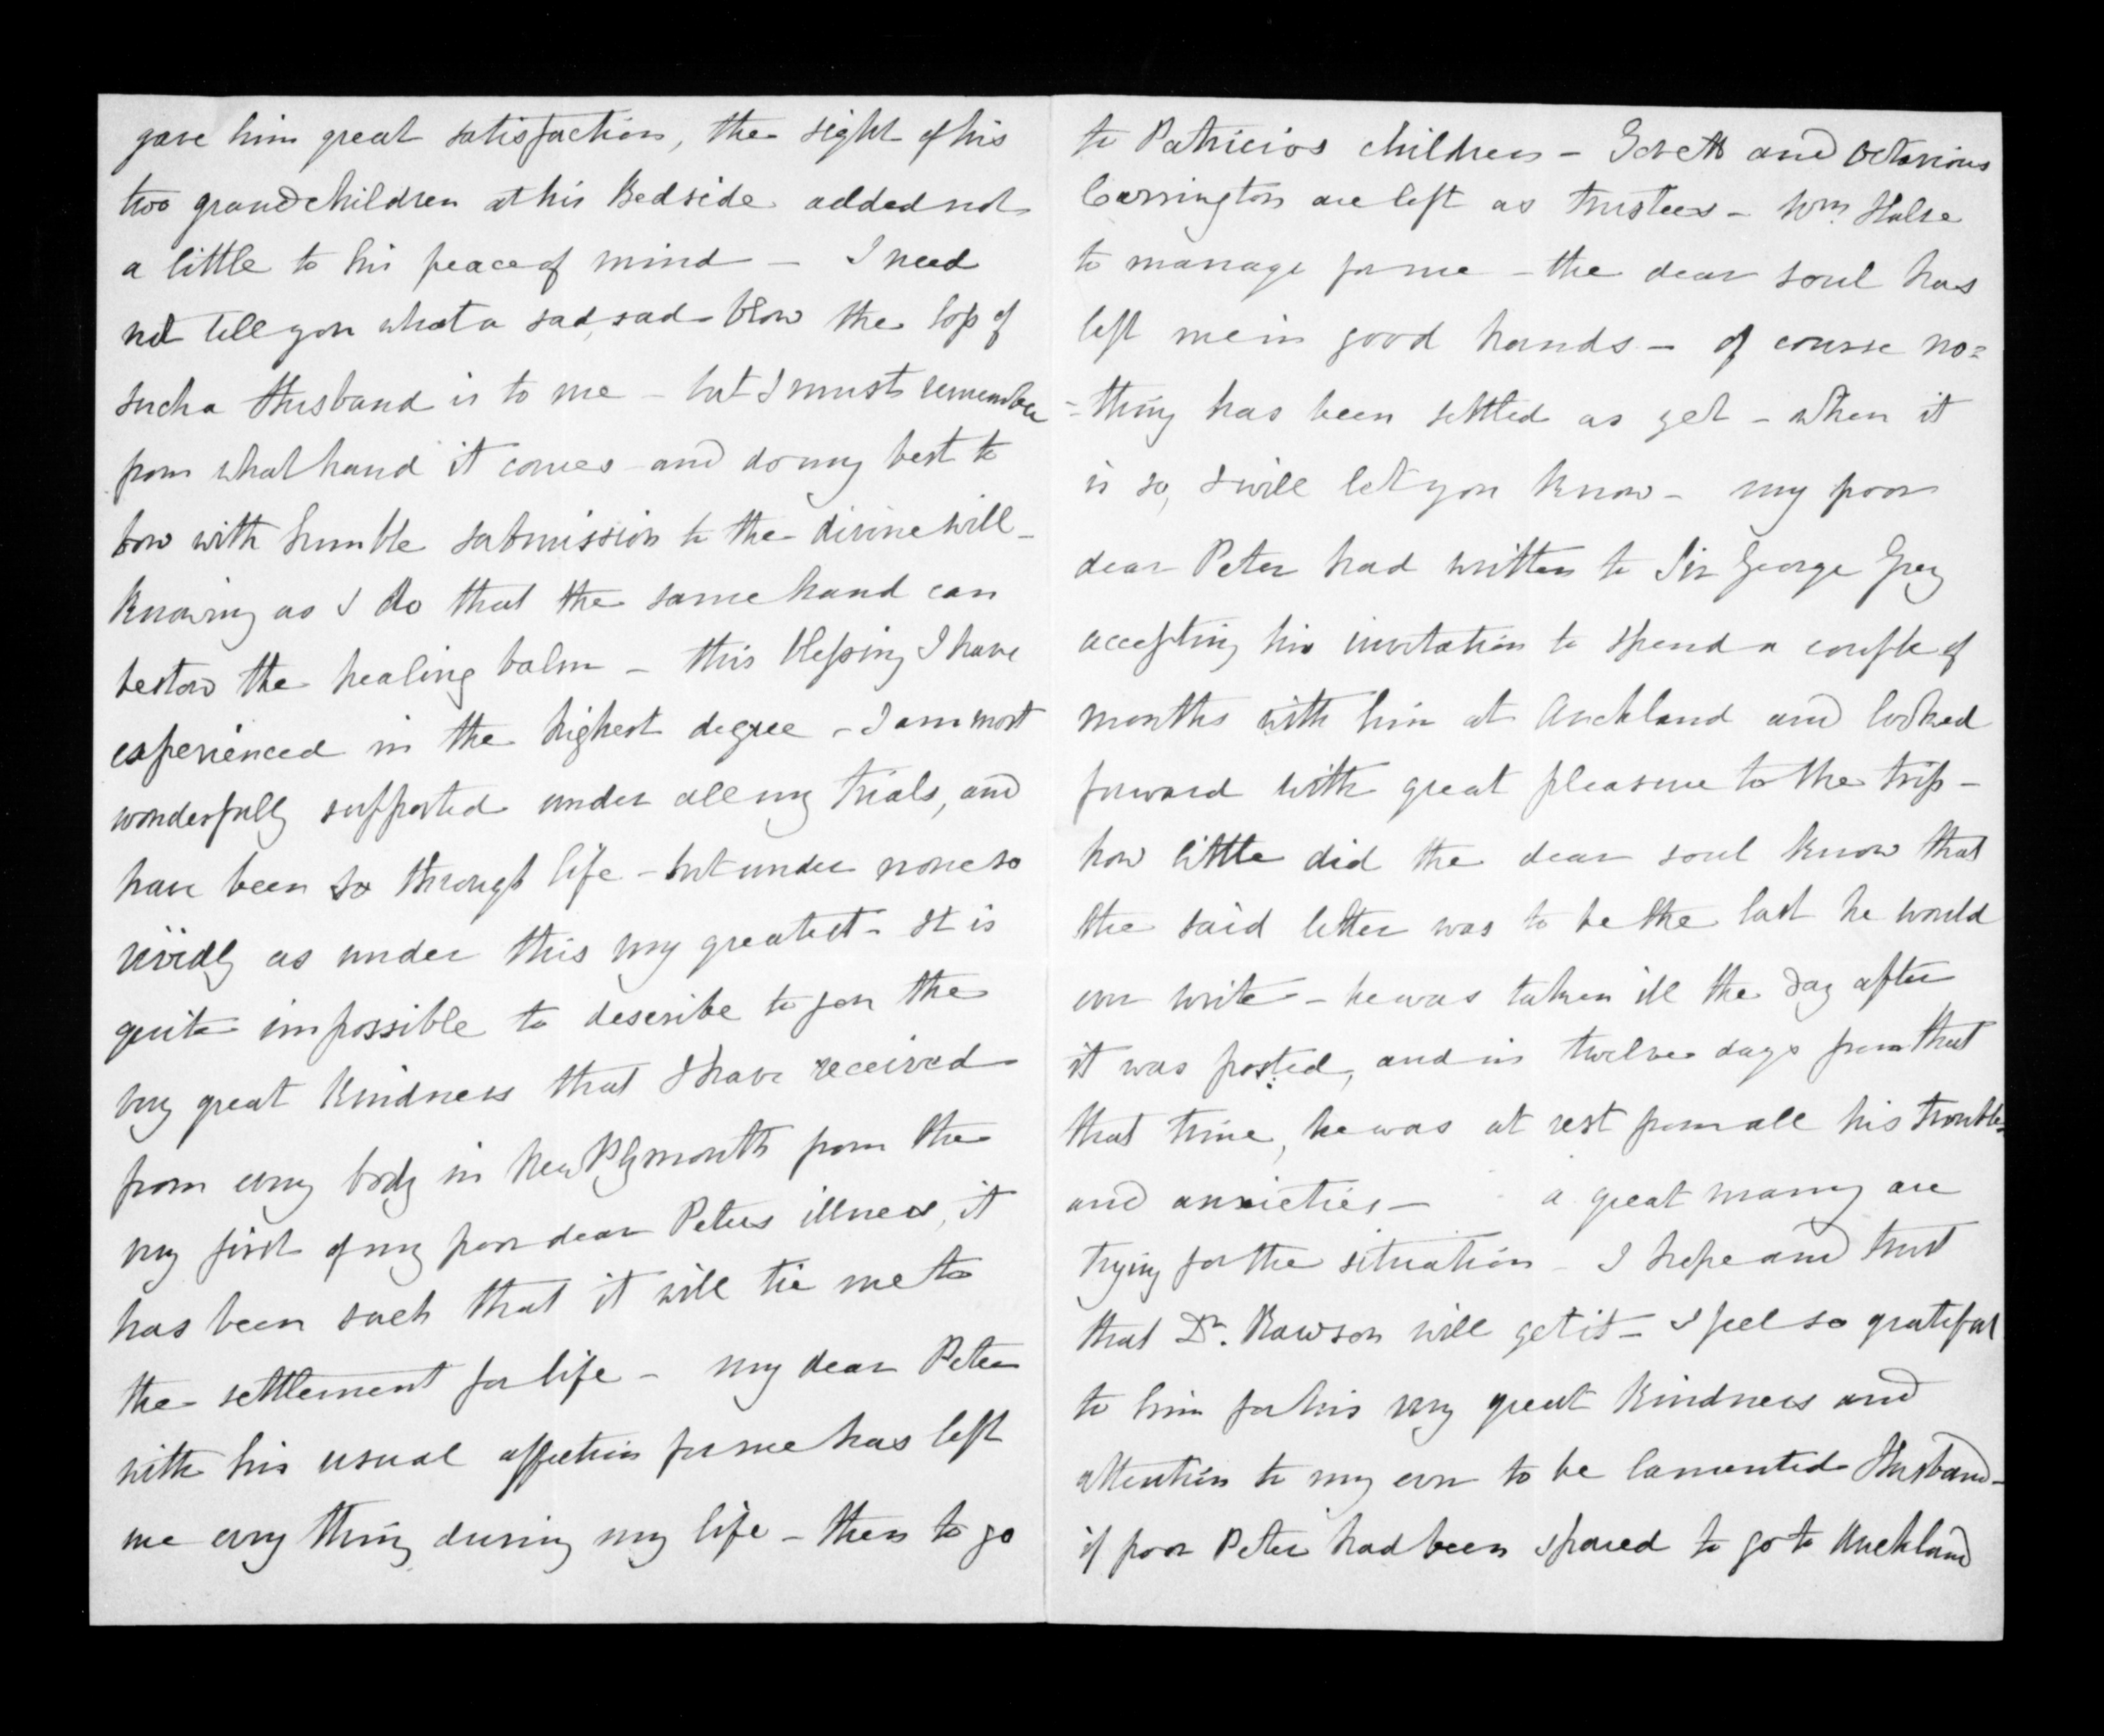 gave him great satisfaction, the sight of his
two grandchildren at his Bedside added not
a little to his peace of mind — I need
not tell you what a sad, sad blow the loss of
such a Husband is to me – but I must remember
from what hand it comes and do my best to
bow with humble submission to the divine will –
knowing as I do that the same hand can
bestow the healing balm – this blessing I have
experienced in the highest degree – I am most
wonderfully supported under all my trials, and
have been so through life – but under none so
vividly as under this my greatest – It is
quite impossible to describe to you the
very great kindness that I have received
from every body in New Plymouth from the
very first of my poor dear Peters illness, it
has been such that it will tie me to
the settlement for life – my dear Peter
with his usual affection for me has left
me every thing during my life – then to go
to Patricios children – and Octavious
Carrington are left as trustees – Wm. Halse
to manage for me – the dear soul has
left me in good hands – of course no=
=thing has been settled as yet – when it
is so, I will let you know – my poor
dear Peter had written to Sir George Grey
accepting his invitation to spend a couple of
months with him at Auckland and looked
forward with great pleasure to the trip –
how little did the dear soul know that
the said letter was to be the last he would
ever write – he was taken ill the day after
it was posted, and in twelve days from that
that time, he was at rest from all his troubles
and anxieties – a great many are
trying for the situation – I hope and trust
that Dr. Rawson will get it – I feel so grateful
to him for his very great kindness and
attention to my ever to be lamented Husband –
if poor Peter had been spared to go to Auckland